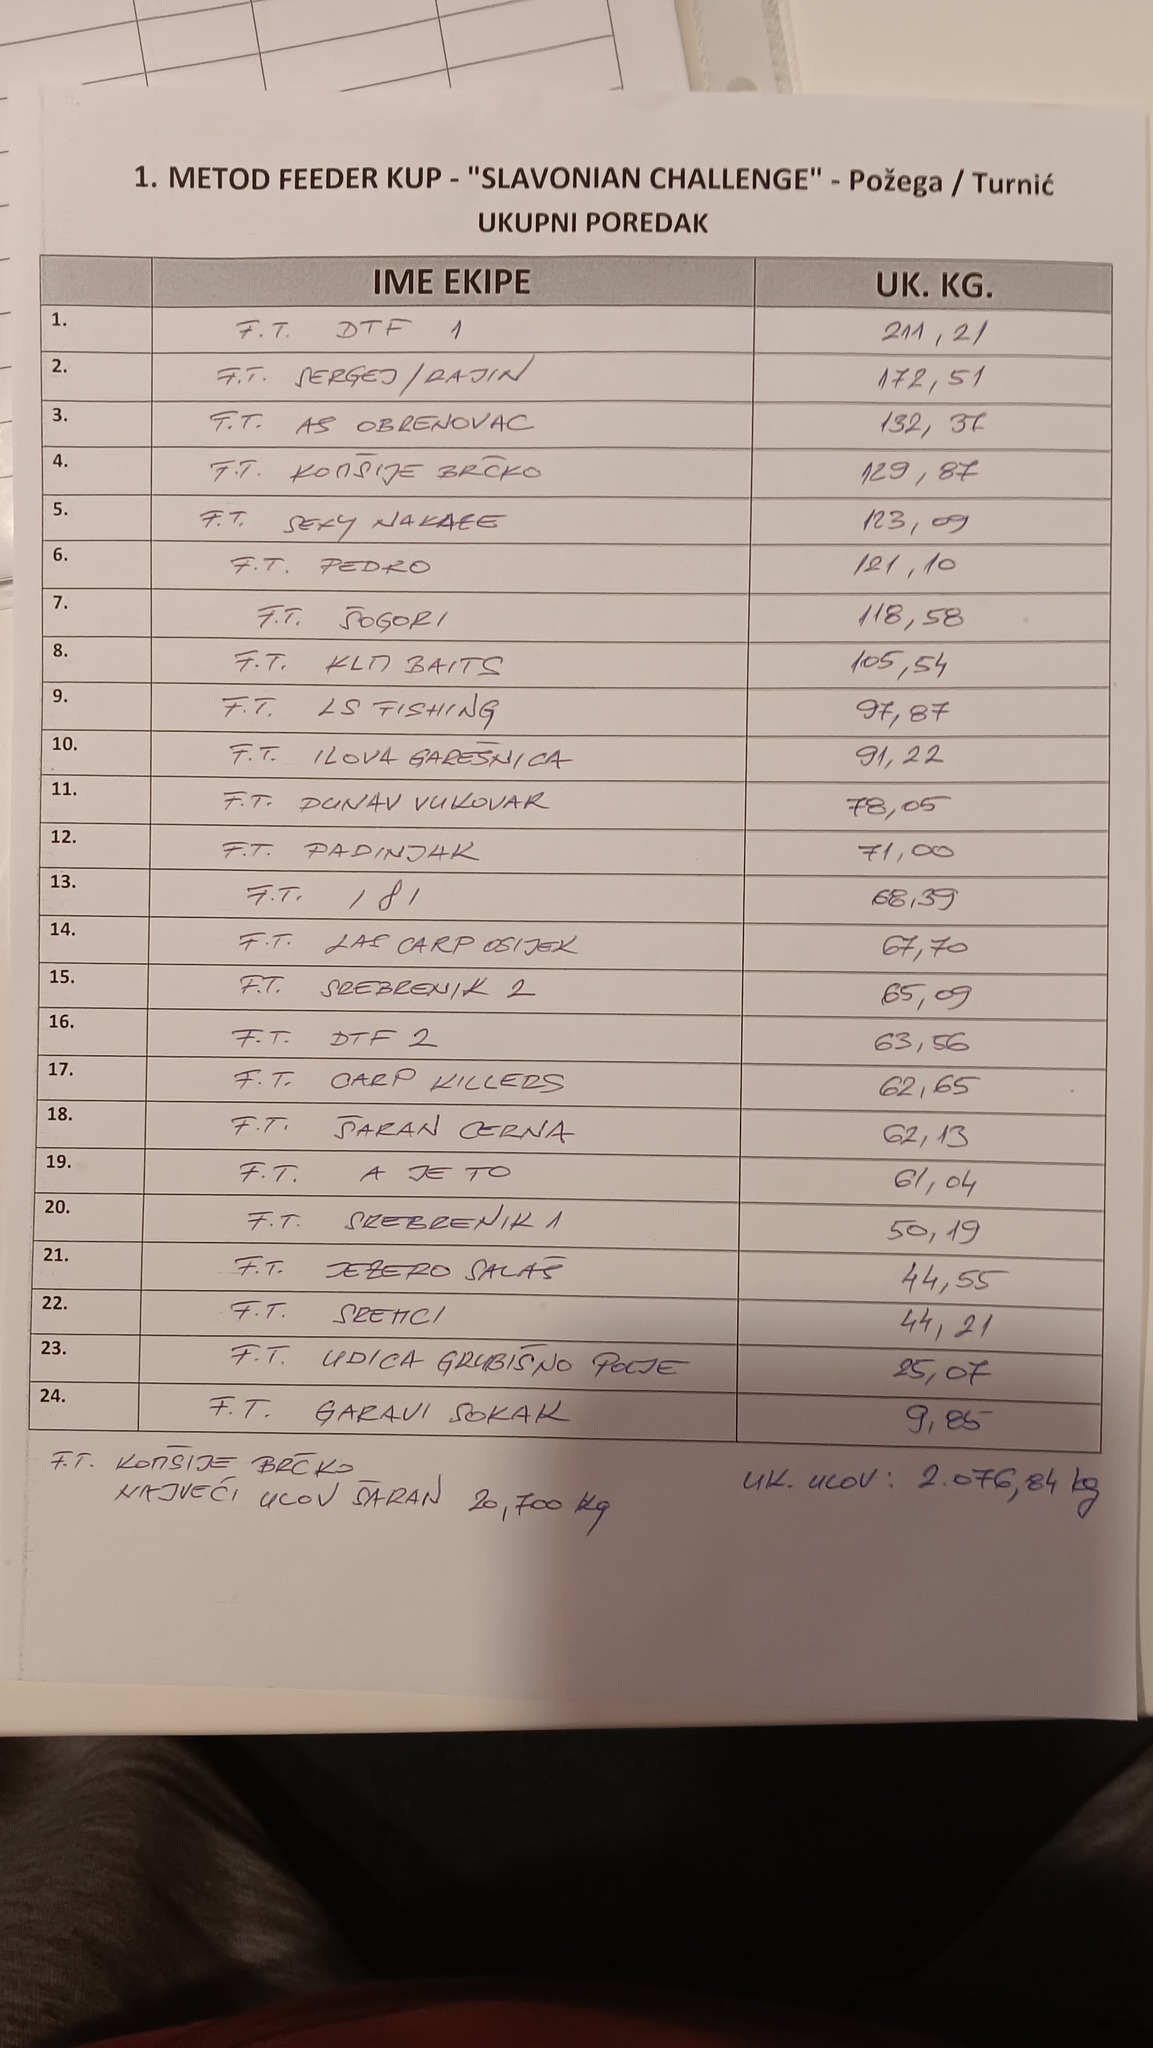 1. METOD FEEDER KUP - "SLAVONIAN CHALLENGE" - Požega / Turnić
UKUPNI POREDAK
IME EKIPE UK. KG.
1. F.T. DTF 1 211,21
2. F.T. SERGEJ/RAJIN 172,51
3. F.T. AS OBRENOVAC 132,
4. F.T. KOMŠIJE BRČKO 129,87
5. F.T. SEXY 123,09
6. F.T. PEDRO 121,10
7. F.T. ŠOGORI 118,58
8. F.T. KLM BAITS 105,54
9. F.T. LS FISHING 97,87
10. F.T. ILOVA GAREŠNICA 91,22
11. F.T. DUNAV VUKOVAR 78,05
12. F.T. PADINJAK 71,00
13. F.T. 181 68,39
14. F.T. LAS CARP OSIJEK 67,70
15. F.T. SREBRENIK 2 65,09
16. F.T. DTF 2 63,56
17. F.T. CARP KILLERS 62,65
18. F.T. ŠARAN CERNA 62,13
19. F.T. A JE TO 61,04
20. F.T. SREBRENIK 1 50,19
21. F.T. JEZERO SALAŠ 44,55
22. F.T. SREMCI 44,21
23. F.T. UDICA GRUBIŠNO POLJE 25,07
24. F.T. GARAVI SOKAK 9,85
F.T. KOMŠIJE BRČKO
NAJVEĆI ULOV ŠARAN 20,700 kg
UK. ULOV: 2.076,84 kg